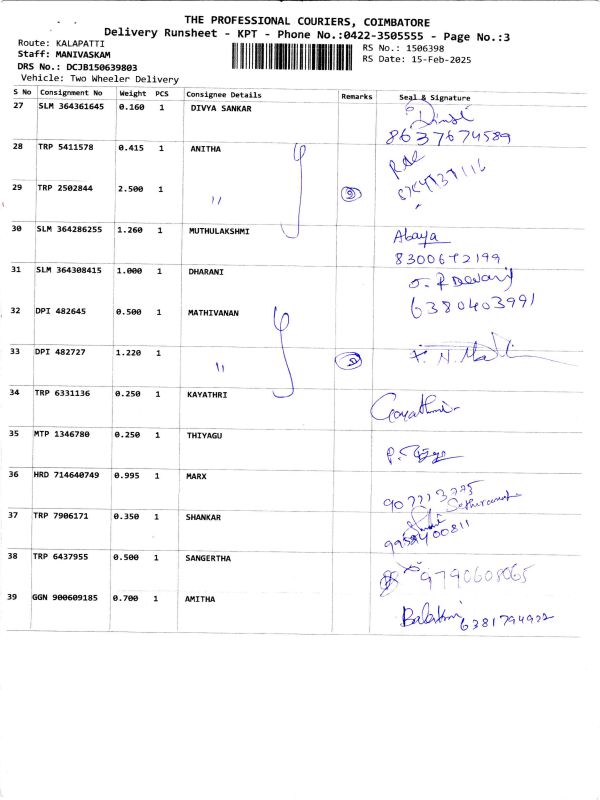 THE PROFESSIONAL COURIERS, COIMBATORE
Delivery Runsheet - KPT - Phone No.:0422-3505555 - Page No.:3
Route: KALAPATTI
RS No.: 1506398
Staff: MANIVASKAM
RS Date: 15-Feb-2025
DRS No.: DCJB150639803
Vehicle: Two Wheeler Delivery
S No Consignment No Weight PCS Consignee Details Remarks Seal & Signature
27 SLM 364361645 0.160 1 DIVYA SANKAR
8637674589
28 TRP 5411578 0.415 1 ANITHA
29 TRP 2502844 2.500 1 "
30 SLM 364286255 1.260 1 MUTHULAKSHMI Abaya
8300672199
31 SLM 364308415 1.000 1 DHARANI
6380403991
32 DPI 482645 0.500 1 MATHIVANAN
33 DPI 482727 1.220 1 "
34 TRP 6331136 0.250 1 KAYATHRI Gayathri
35 MTP 1346780 0.250 1 THIYAGU
36 HRD 714640749 0.995 1 MARX
37 TRP 7906171 0.350 1 SHANKAR
38 TRP 6437955 0.500 1 SANGERTHA 9790608065
39 GGN 900609185 0.700 1 AMITHA
6381794922